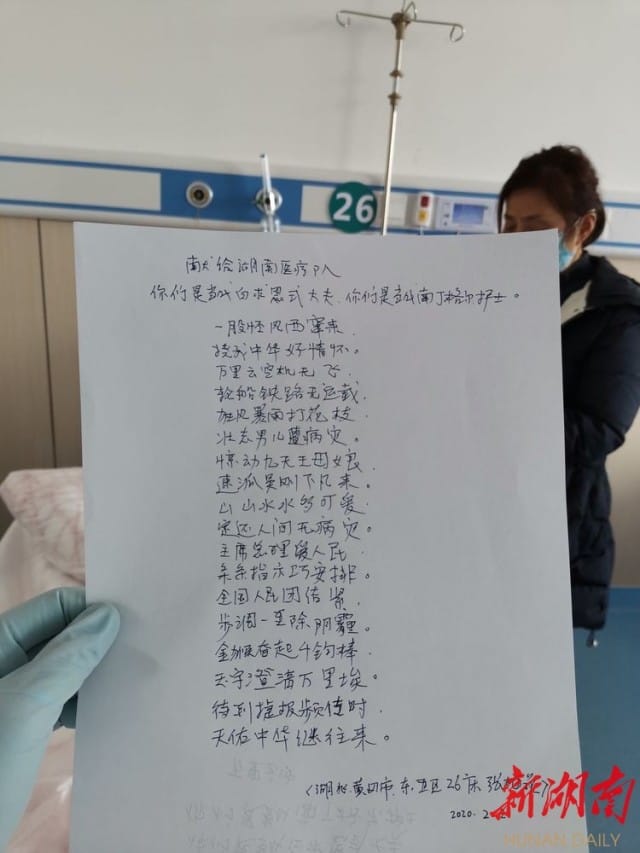 26
献给湖南医疗队
你们是当代白求恩式大夫、你们是当代南丁格尔护士。
一股怪风西窜来，
扰我中华好情怀。
万里云空机无飞，
轮船铁路无运载，
狂风暴雨打花枝，
壮态男儿蔓病灾。
惊动九天王母娘，
速派吴刚下凡来。
山山水水多可爱，
定还人间无病灾。
主席总理爱人民，
条条指示巧安排。
全国人民团结紧，
步调一至除阴霾。
金猴奋起千钧棒，
玉宇澄清万里埃。
待到捷报频传时，
天佑中华继往来。
湖北黄冈市.东五区26床 张
2020.2
新湖南
HUNAN DAILY